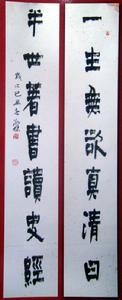 一生無欲真清白
半世著書讀史經
歲次己丑